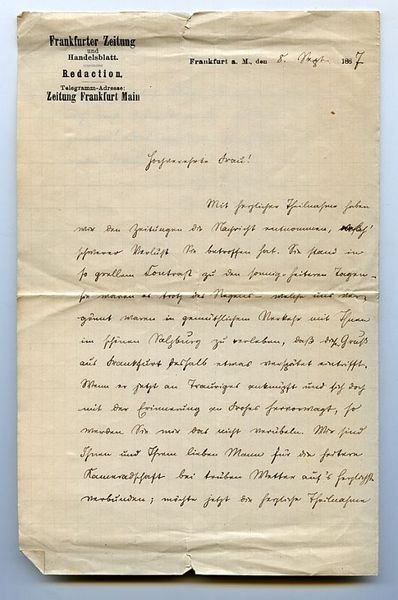 Frankfurter Zeitung
und
Handelsblatt.
Redaction.
Telegramm-Adresse:
Zeitung Frankfurt Main
Frankfurt a. M., den 8. Sept. 1887
Hochverehrte Frau!
Mit herzlicher Theilnahme haben
wir den Zeitungen die Nachricht entnommen, welch'
schwerer Verlust Sie betroffen hat. Sie stand in
so grellem Contrast zu den sonnig-heiteren Tagen –
sie waren es trotz des Regens – welche uns ver-
gönnt waren in gemüthlichem Verkehr mit Ihnen
im schönen Salzburg zu verleben, daß der Gruß
aus Frankfurt deshalb etwas verspätet eintrifft.
Wenn er jetzt an Trauriges anknüpft und sich doch
mit der Erinnerung an Frohes hervorwagt, so
werden Sie mir das nicht verübeln. Wir sind
Ihnen und Ihrem lieben Mann für die heitere
Kameradschaft bei trübem Wetter auf's herzlichste
verbunden; möchte jetzt die herzliche Theilnahme